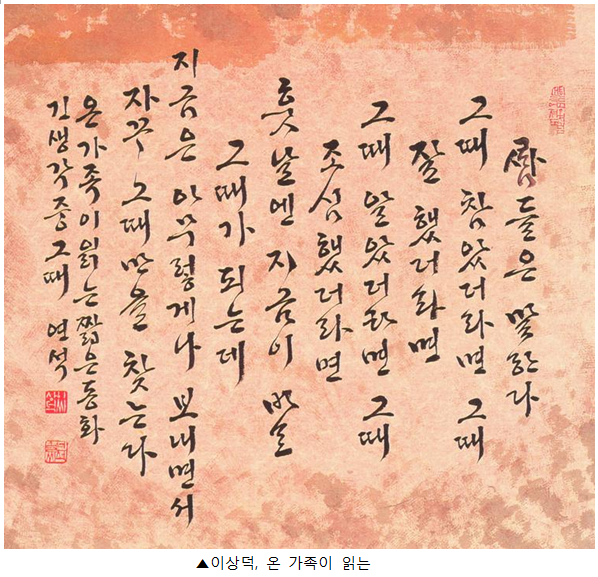 사람들은 말한다
그때 참았더라면 그때
잘 했더라면
그때 알았더라면 그때
조심 했더라면
훗날엔 지금이 바로
그때가 되는데
지금은 아무렇게나 보내면서
자꾸 그때만을 찾는다
온가족이읽는짧은동화
긴생각중 그때 연석
▲이상덕, 온 가족이 읽는